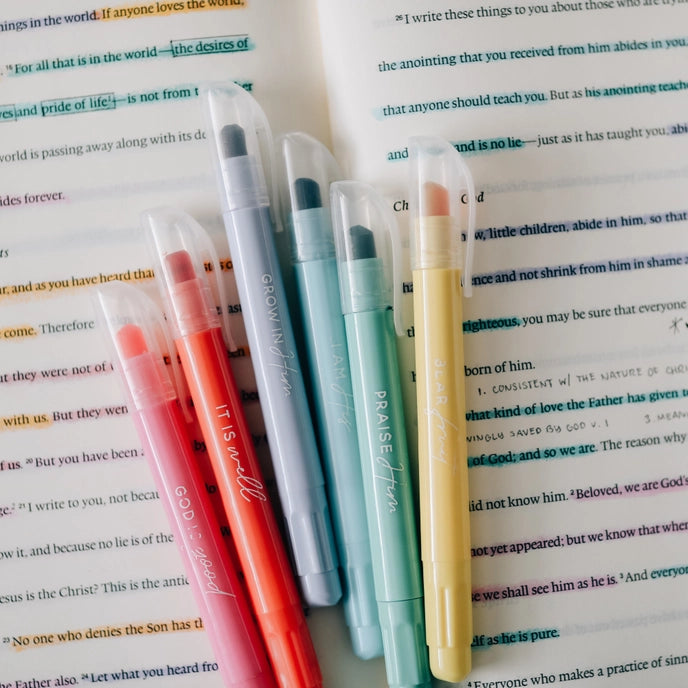 things in the world. If anyone loves the world,
16 For all that is in the world—the desires of
and pride of life—is not from
world is passing away along with its
forever.
and as you have heard that
come. Therefore
they were not of
with us. But they
us. 20 But you have been
21 I write to you, not
it, and because no lie is of the
is the Christ? This is the
23 No one who denies the Son has
Father also. 24 Let what you heard
26 I write these things to you about those who are
the anointing that you received from him abides in you,
that anyone should teach you. But as his anointing
and is no lie—just as it has taught you,
little children, abide in him, so that
and not shrink from him in shame
righteous, you may be sure that everyone
born of him.
1. CONSISTENT W/ THE NATURE OF
what kind of love the Father has given
SAVED BY GOD V. 1 3.
of God; and so we are. The reason why
did not know him. 2 Beloved, we are God's
not yet appeared; but we know that
we shall see him as he is. 3 And
as he is pure.
4 Everyone who makes a practice of
GOD IS good
IT IS well
GROW IN Him
I AM His
PRAISE Him
BEAR fruit